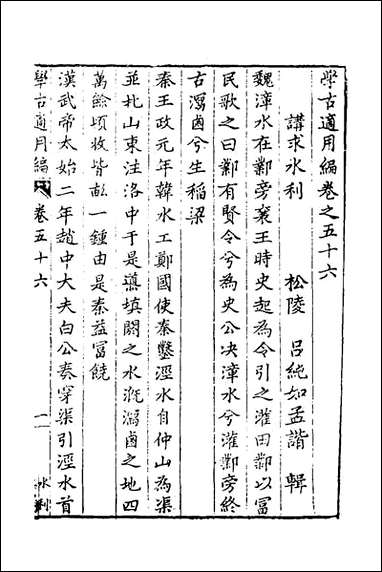 學古適用編卷之五十六
講求水利　松陵　呂純如孟諧　輯
魏漳水在鄴旁襄王時史起為令引之灌田鄴以富
民歌之曰鄴有賢令兮為史公决漳水兮灌鄴旁終
古潟鹵兮生稻梁
秦王政元年韓水工鄭國使秦鑿涇水自仲山為渠
並北山東注洛中于是溉填閼之水溉潟鹵之地四
萬餘頃收皆畝一鍾由是秦益富饒
漢武帝太始二年趙中大夫白公奏穿渠引涇水首
學古適用編　卷五十六　一　水利